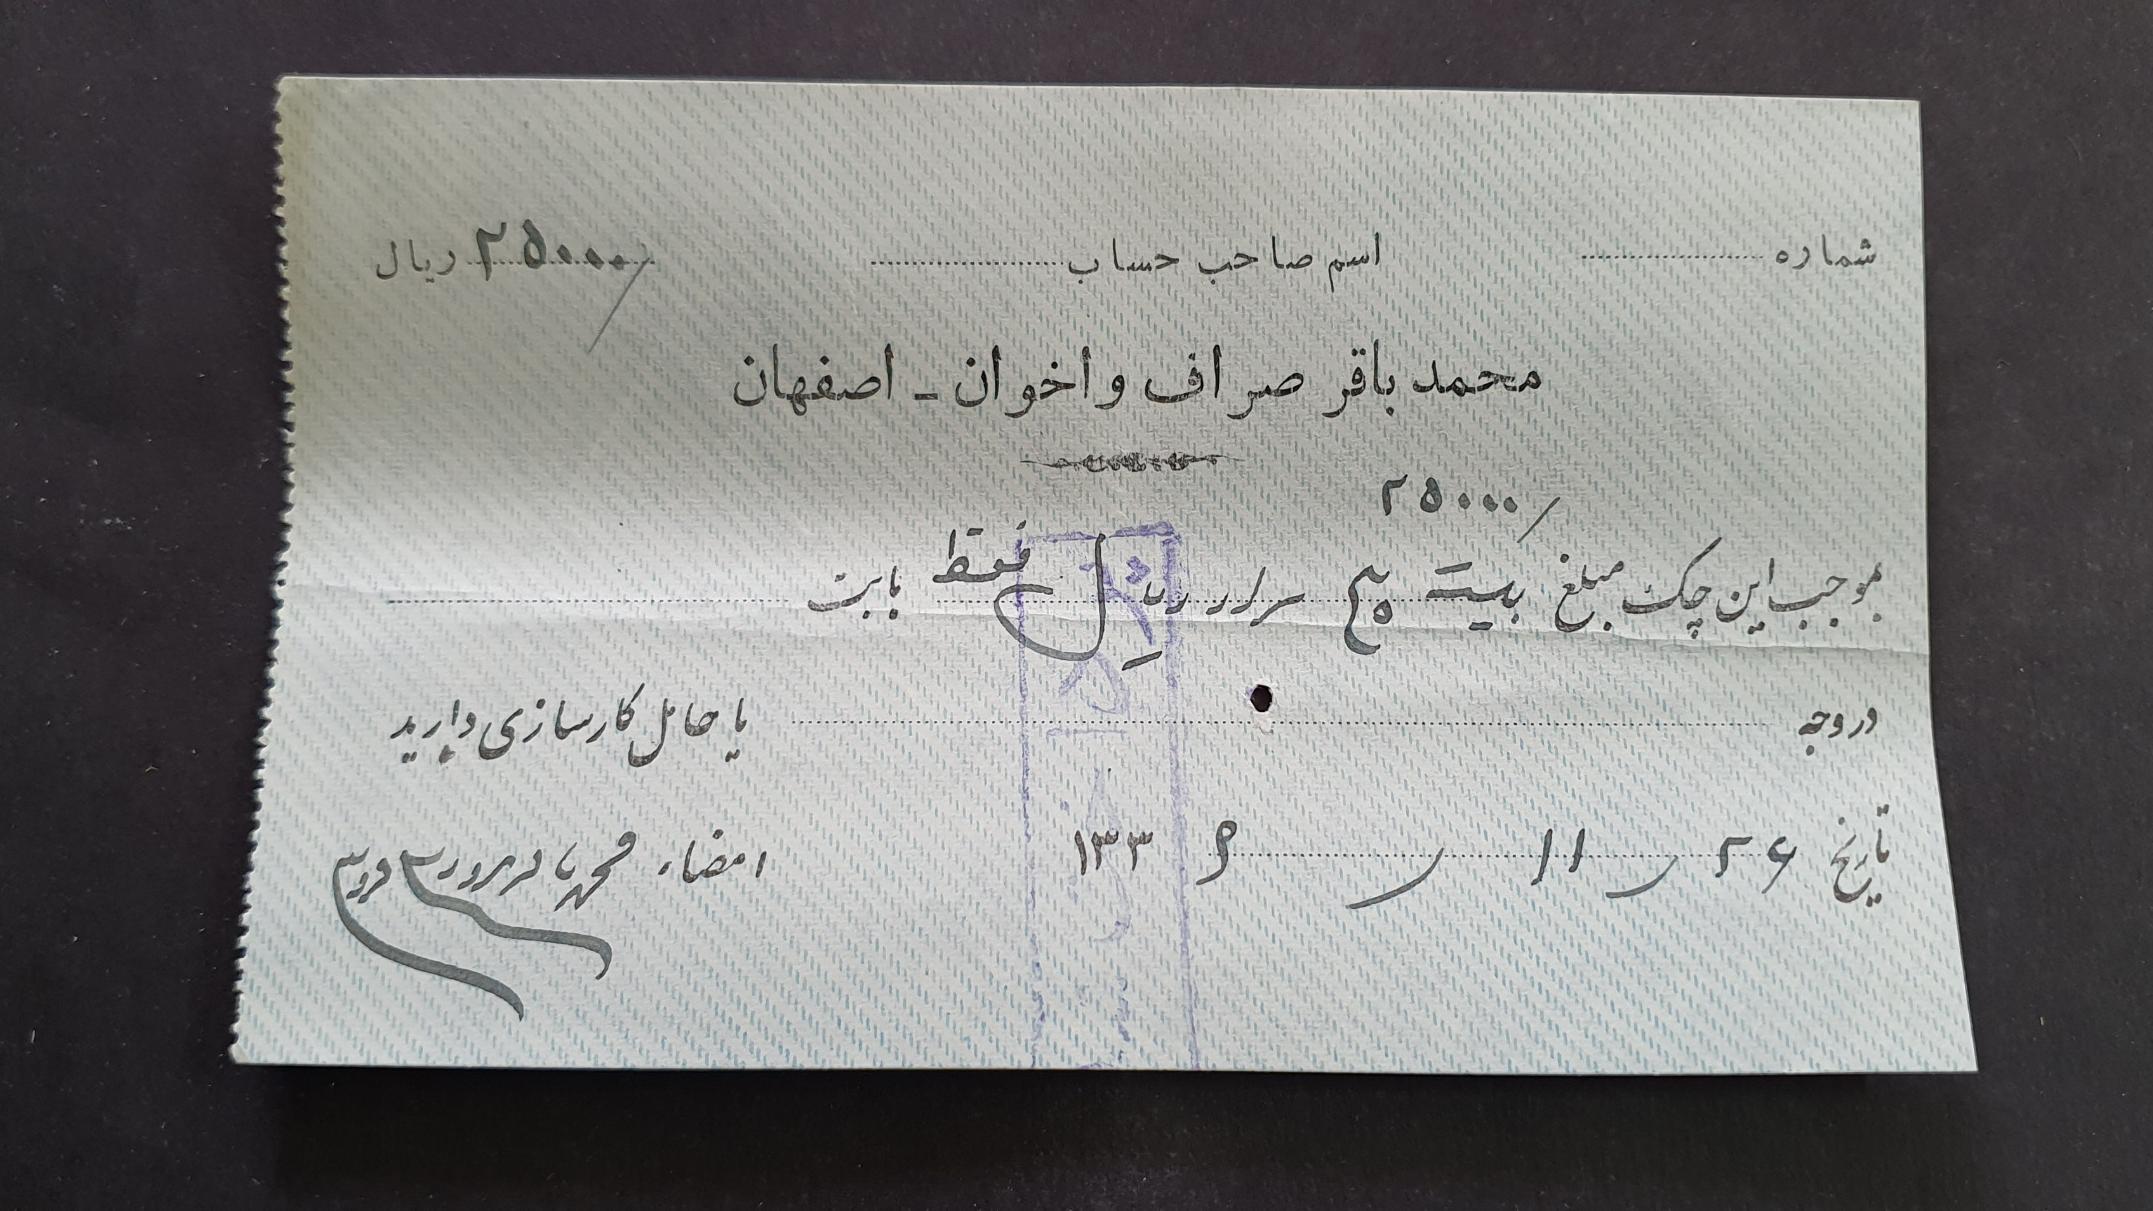 شماره ............ اسم صاحب حساب ............ ۲۵۰۰۰/ ریال
محمد باقر صراف و اخوان - اصفهان
۲۵۰۰۰/
بموجب این چک مبلغ بیست پنج هزار ریال فقط بابت ............
در وجه ............ یا حامل کارسازی دارید
تاریخ ۲۶ / ۱۱ / ۱۳۳۶ امضاء محمد باقر